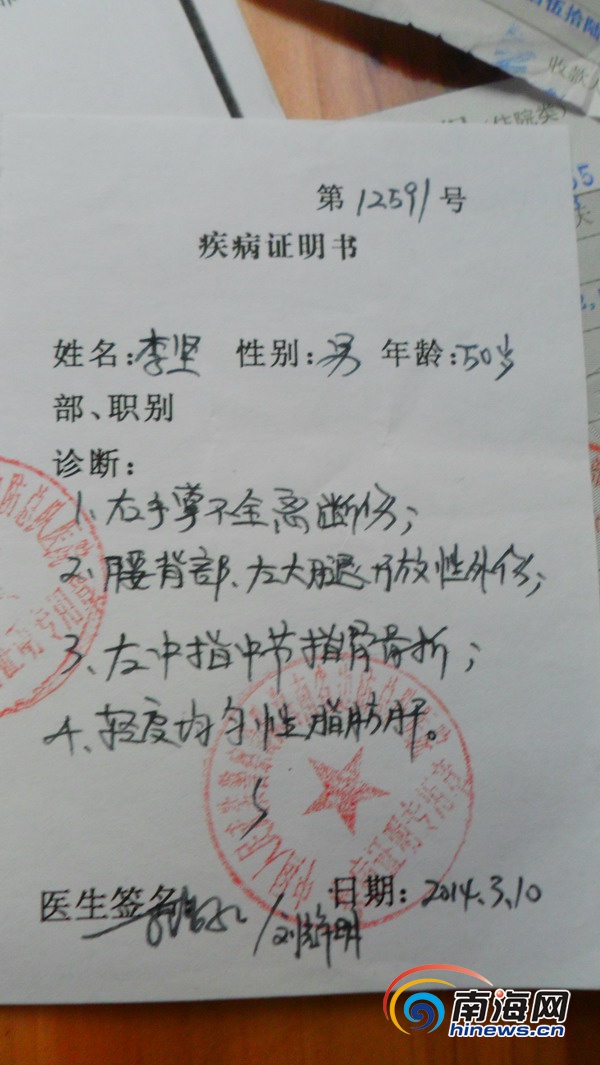 伍拾陆
收款人
（住院类）
第12591号
疾病证明书
姓名：李坚 性别：男 年龄：50岁
部、职别
诊断：
1、左手掌不全离断伤；
2、腰背部、左大腿开放性外伤；
3、左中指中节指骨骨折；
4、轻度均匀性脂肪肝。
医生签名 日期：2014.3.10
南海网
hinews.cn